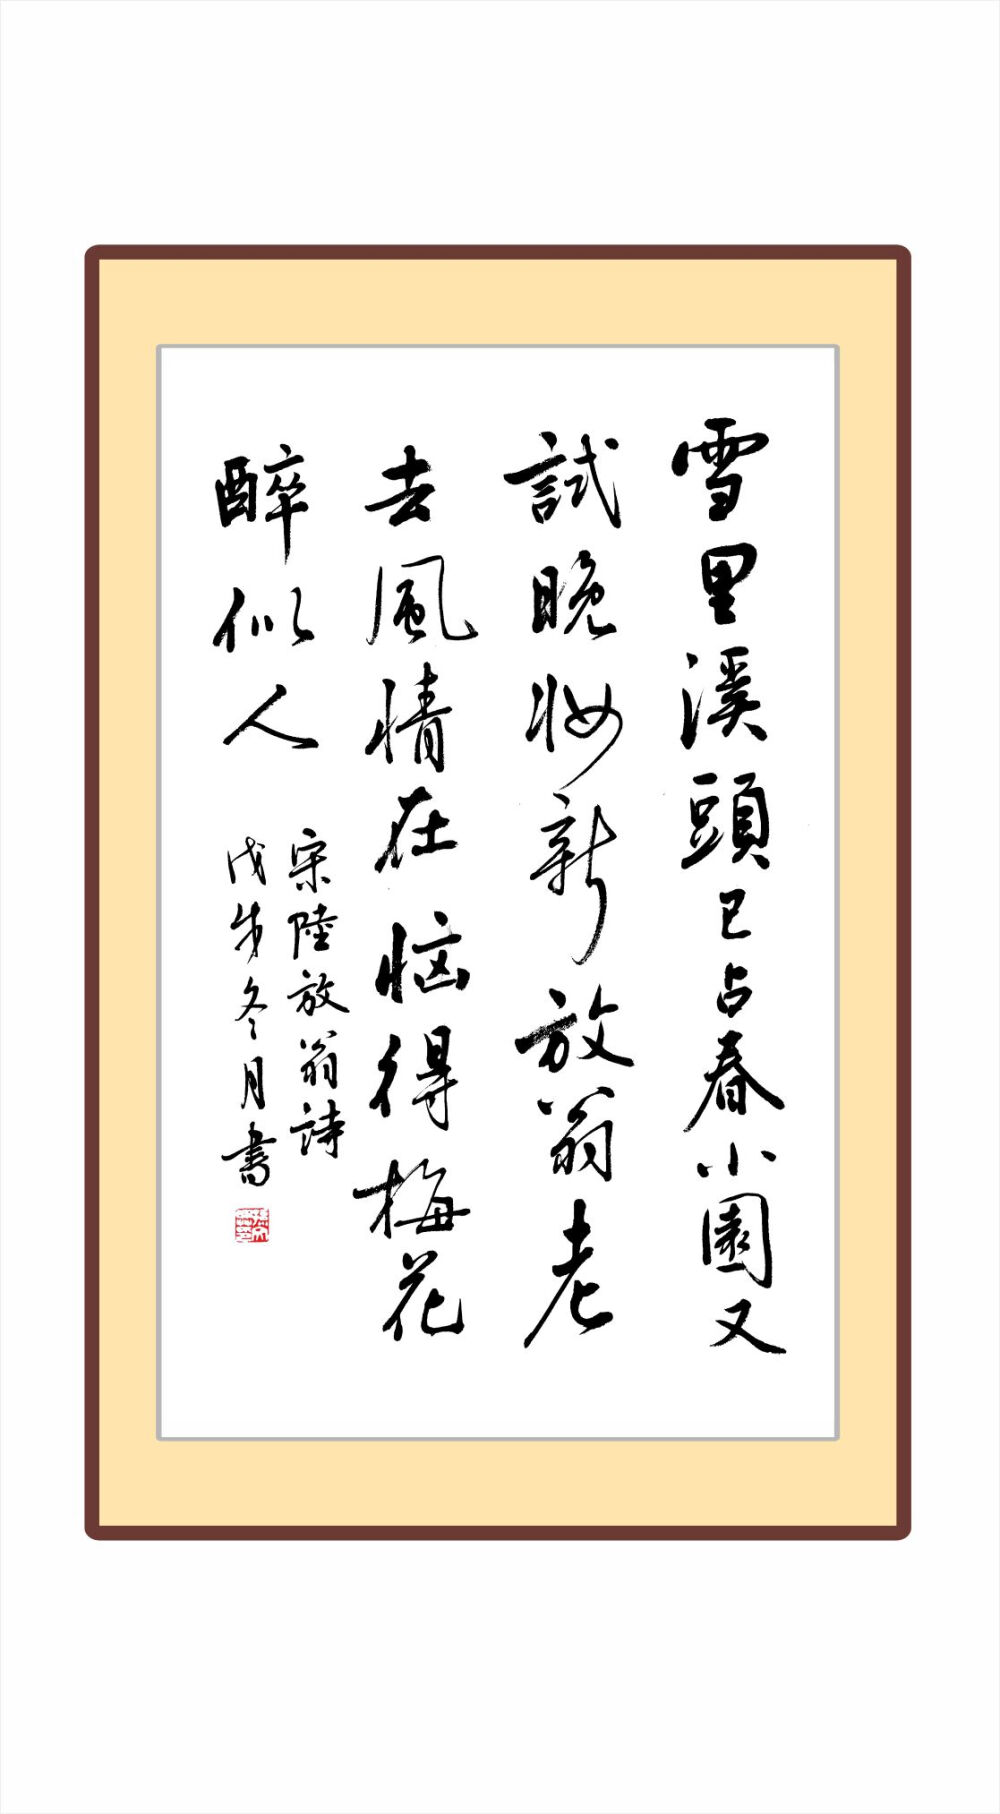 雪里溪頭已占春小園又
試晚妝新放翁老
去風情在惱得梅花
醉似人
宋陸放翁詩
戊戌冬月書